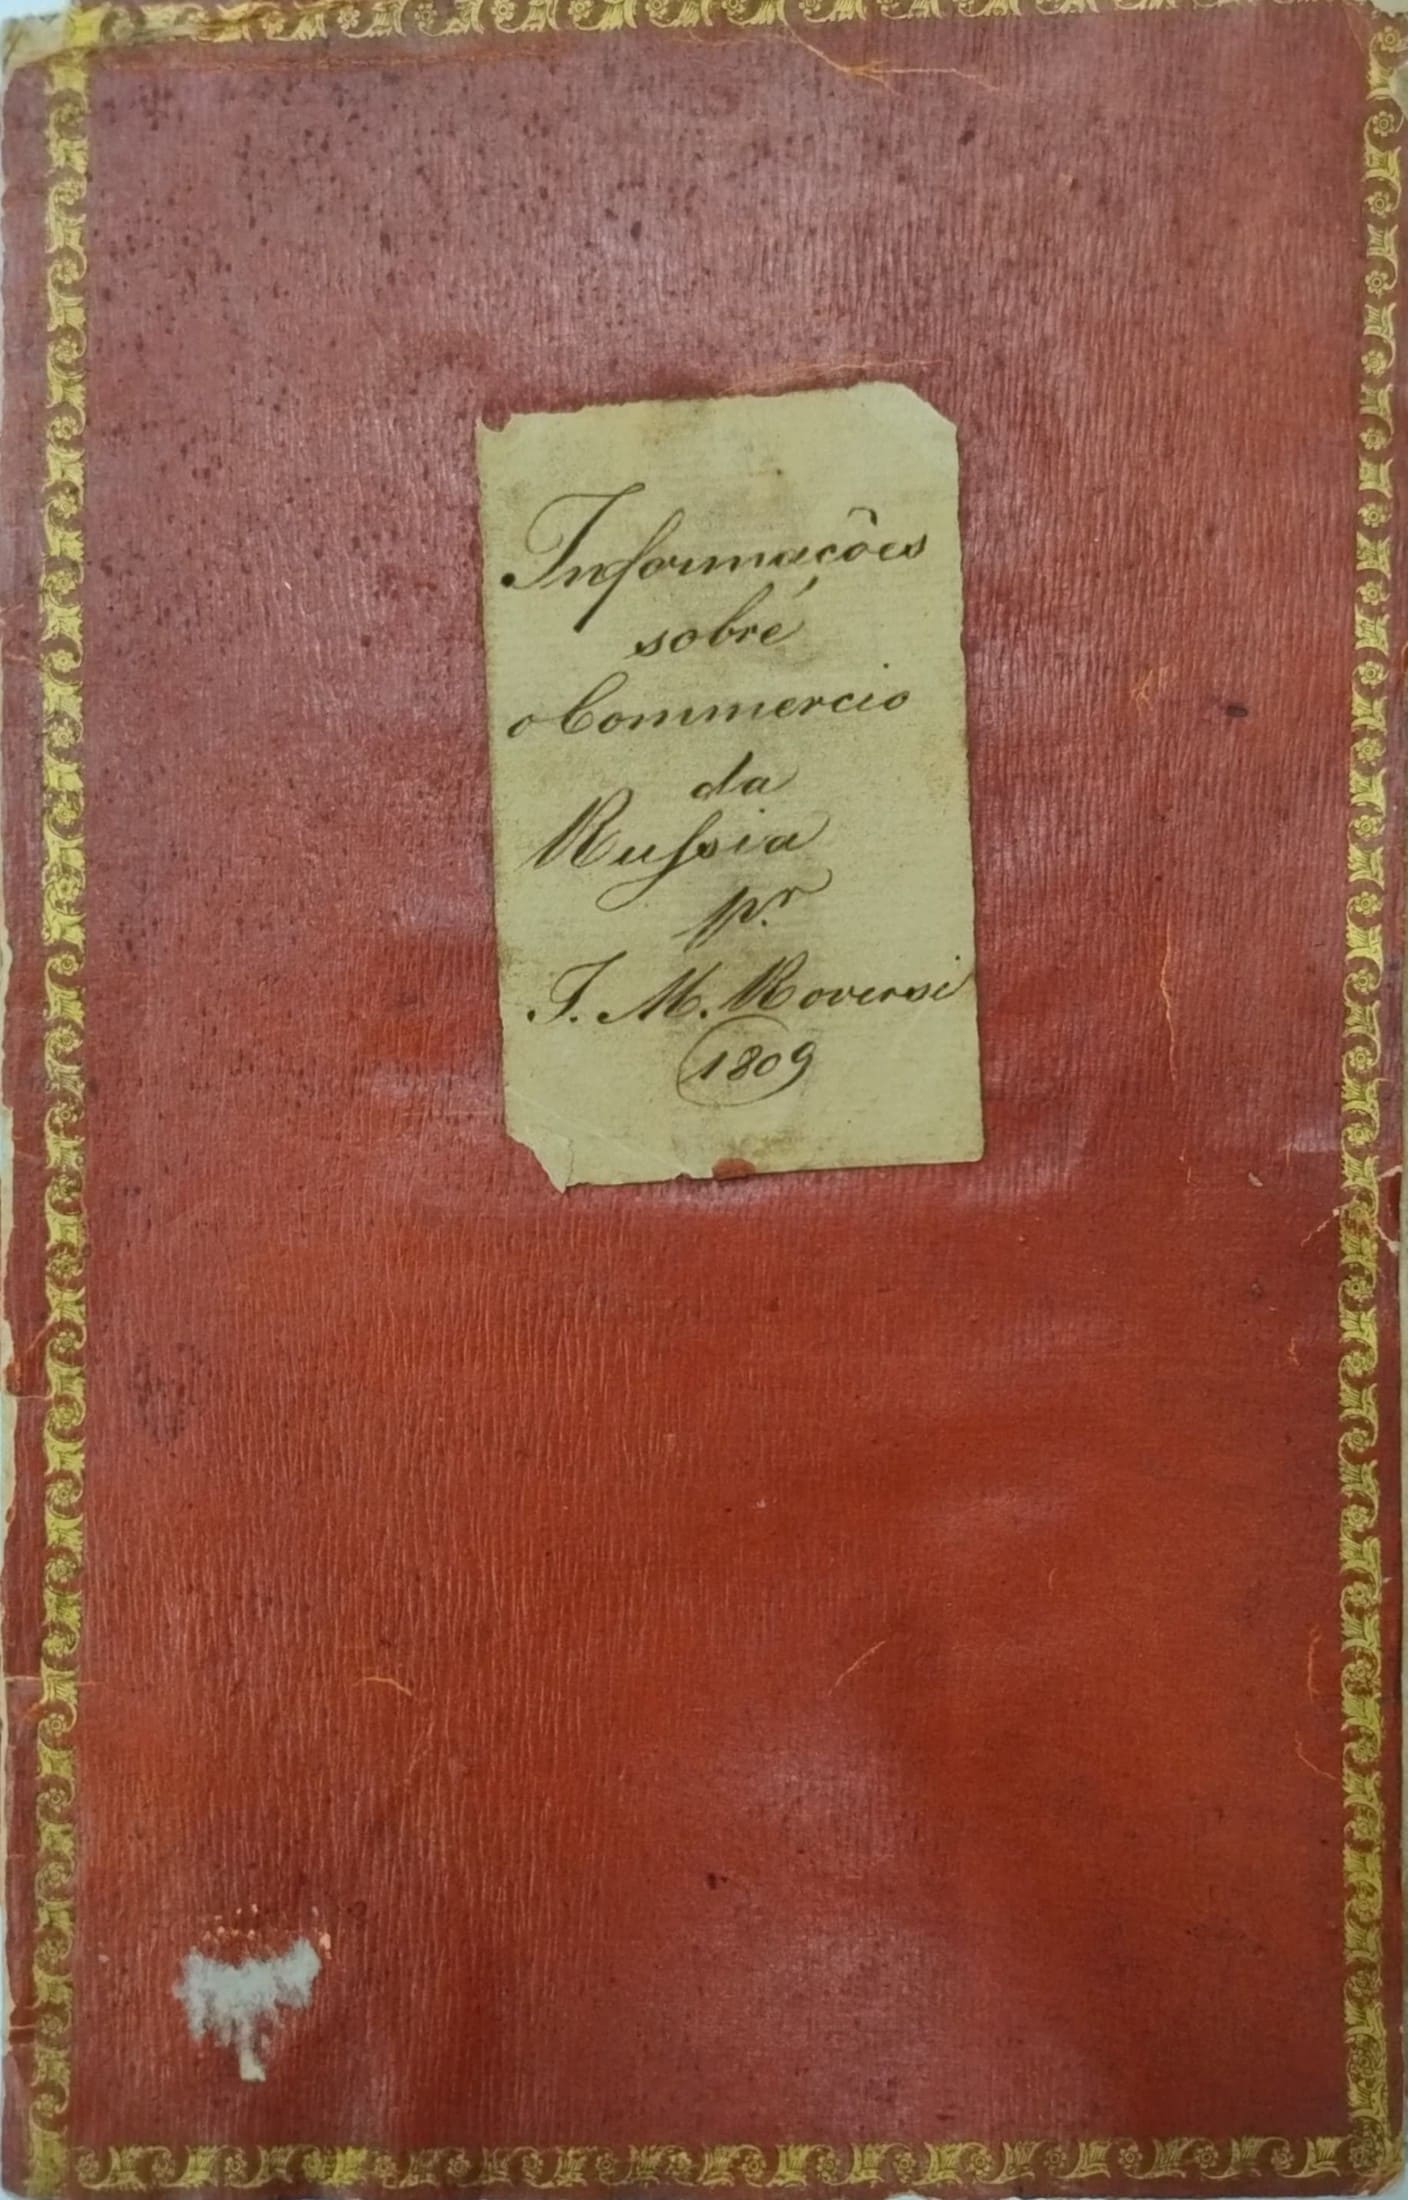 Informações
sobré
o Commercio
da
Russia
p.r
J. M. Roversi
1809